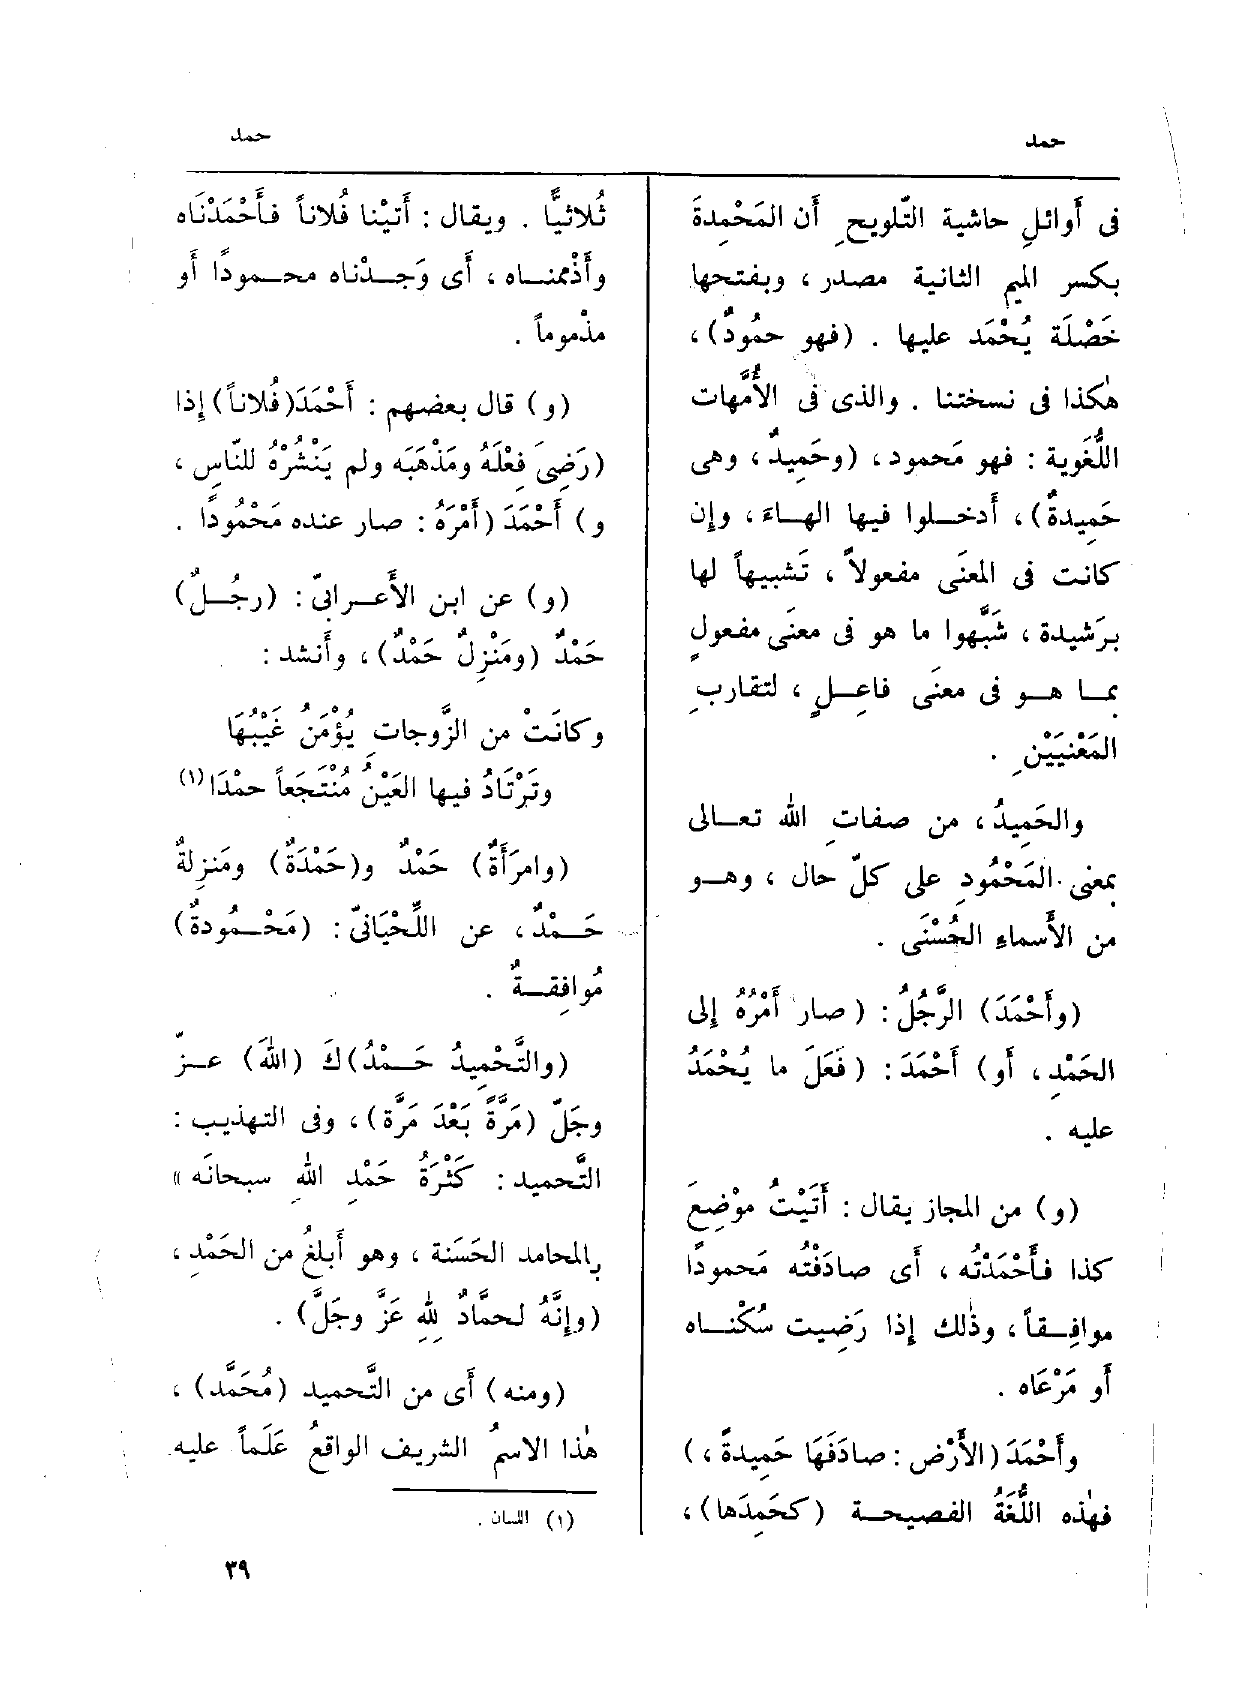 حمد
حمد
فى أَوائلِ حاشية التّلويحِ أَن المَحْمِدةَ
بكسر الميم الثانية مصدر ، وبفتحها
خَصْلَة يُحْمَد عليها . (فهو حمُودٌ) ،
هٰكذا فى نسختنا . والذى فى الأُمَّهات
اللُّغَوية : فهو مَحمود ، (وحَمِيدٌ ، وهى
حَمِيدةٌ) ، أَدخلوا فيها الهاءَ ، وإِن
كانت فى المعنَى مفعولاً ، تَشبيهاً لها
برَشيدة ، شَبَّهوا ما هو فى معنَى مفعولٍ
بما هو فى معنَى فاعِلٍ ، لتقارب
المَعْنيَيْنِ .
والحَمِيدُ ، من صفاتِ الله تعالى
بمعنى المَحْمُودِ على كلّ حال ، وهو
من الأَسماءِ الحُسْنَى .
(وأَحْمَدَ) الرَّجُلُ : (صار أَمْرُهُ إِلى
الحَمْدِ ، أَو) أَحْمَدَ : (فَعَلَ ما يُحْمَدُ
عليه .
(و) من المجاز يقال : أَتَيْتُ موْضِعَ
كذا فأَحْمَدْتُه ، أَى صادَفْتُه مَحمودًا
موافِقاً ، وذٰلك إِذا رَضِيت سُكْناه
أَو مَرْعَاه .
وأَحْمَدَ (الأَرْضَ : صادَفَهَا حَمِيدةً ،)
فهٰذه اللُّغَةُ الفصيحة (كحَمِدَها) ،
ثُلاثيًّا . ويقال : أَتيْنا فُلاناً فأَحْمَدْناه
وأَذْمَمناه ، أَى وَجدْناه محمودًا أَو
مذْموماً .
(و) قال بعضهم : أَحْمَدَ (فُلاناً) إِذا
(رَضِىَ فِعْلَهُ ومَذْهَبَه ولم يَنْشُرْهُ للنّاسِ ،
و) أَحْمَدَ (أَمْرَهُ : صار عنده مَحْمُودًا .
(و) عن ابن الأَعرابىّ : (رجُلٌ)
حَمْدٌ (ومَنْزِلٌ حَمْدٌ) ، وأَنشد :
وكانَتْ من الزَّوجاتِ يُؤْمَنُ غَيْبُهَا
وتَرْتَادُ فيها العَيْنُ مُنْتَجَعاً حمْدَا (١)
(وامرَأَةٌ) حَمْدٌ و(حَمْدَةٌ) ومَنزِلةٌ
حَمْدٌ ، عن اللِّحْيَانىّ : (مَحْمُودةٌ)
مُوافِقةٌ .
(والتَّحْمِيدُ حَمْدُ)كَ (اللهَ) عزّ
وجَلّ (مَرَّةً بَعْدَ مَرَّة) ، وفى التهذيب :
التَّحميد : كَثْرَةُ حَمْدِ اللهِ سبحانَه «
بالمحامد الحَسَنة ، وهو أَبلغُ من الحَمْدِ ،
(وإِنَّهُ لحمَّادٌ لِلهِ عَزَّ وجَلَّ) .
(ومنه) أَى من التَّحميد (مُحَمَّد) ،
هٰذا الاسمُ الشريف الواقعُ عَلَماً عليه
(١) اللسان .
٣٩